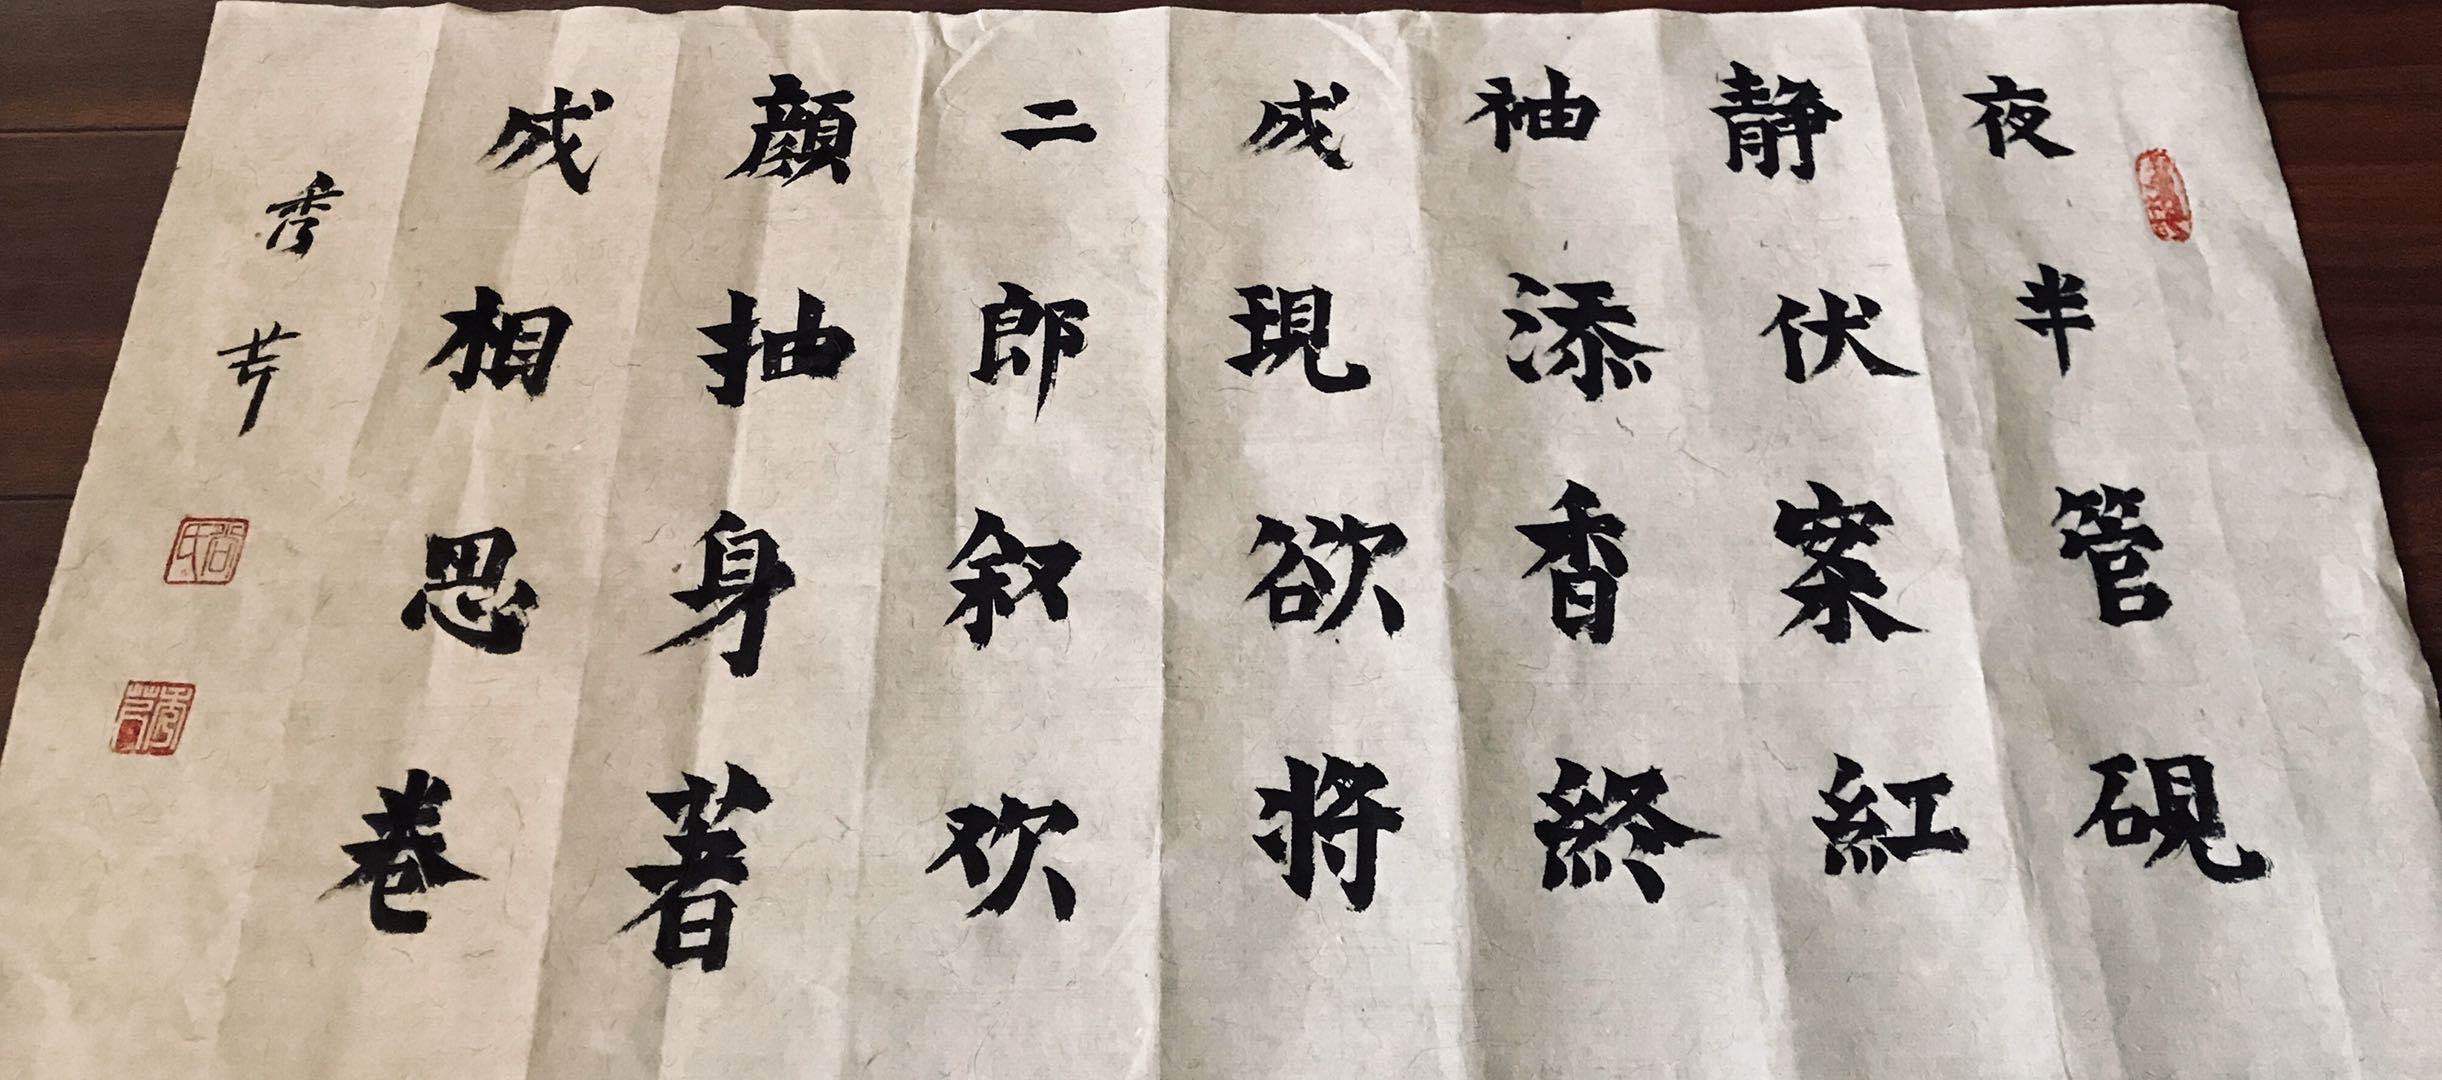 夜半管硯
静伏案紅
袖添香終
成現欲将
二郎叙欢
顔抽身著
成相思卷
秀芳
尚氏